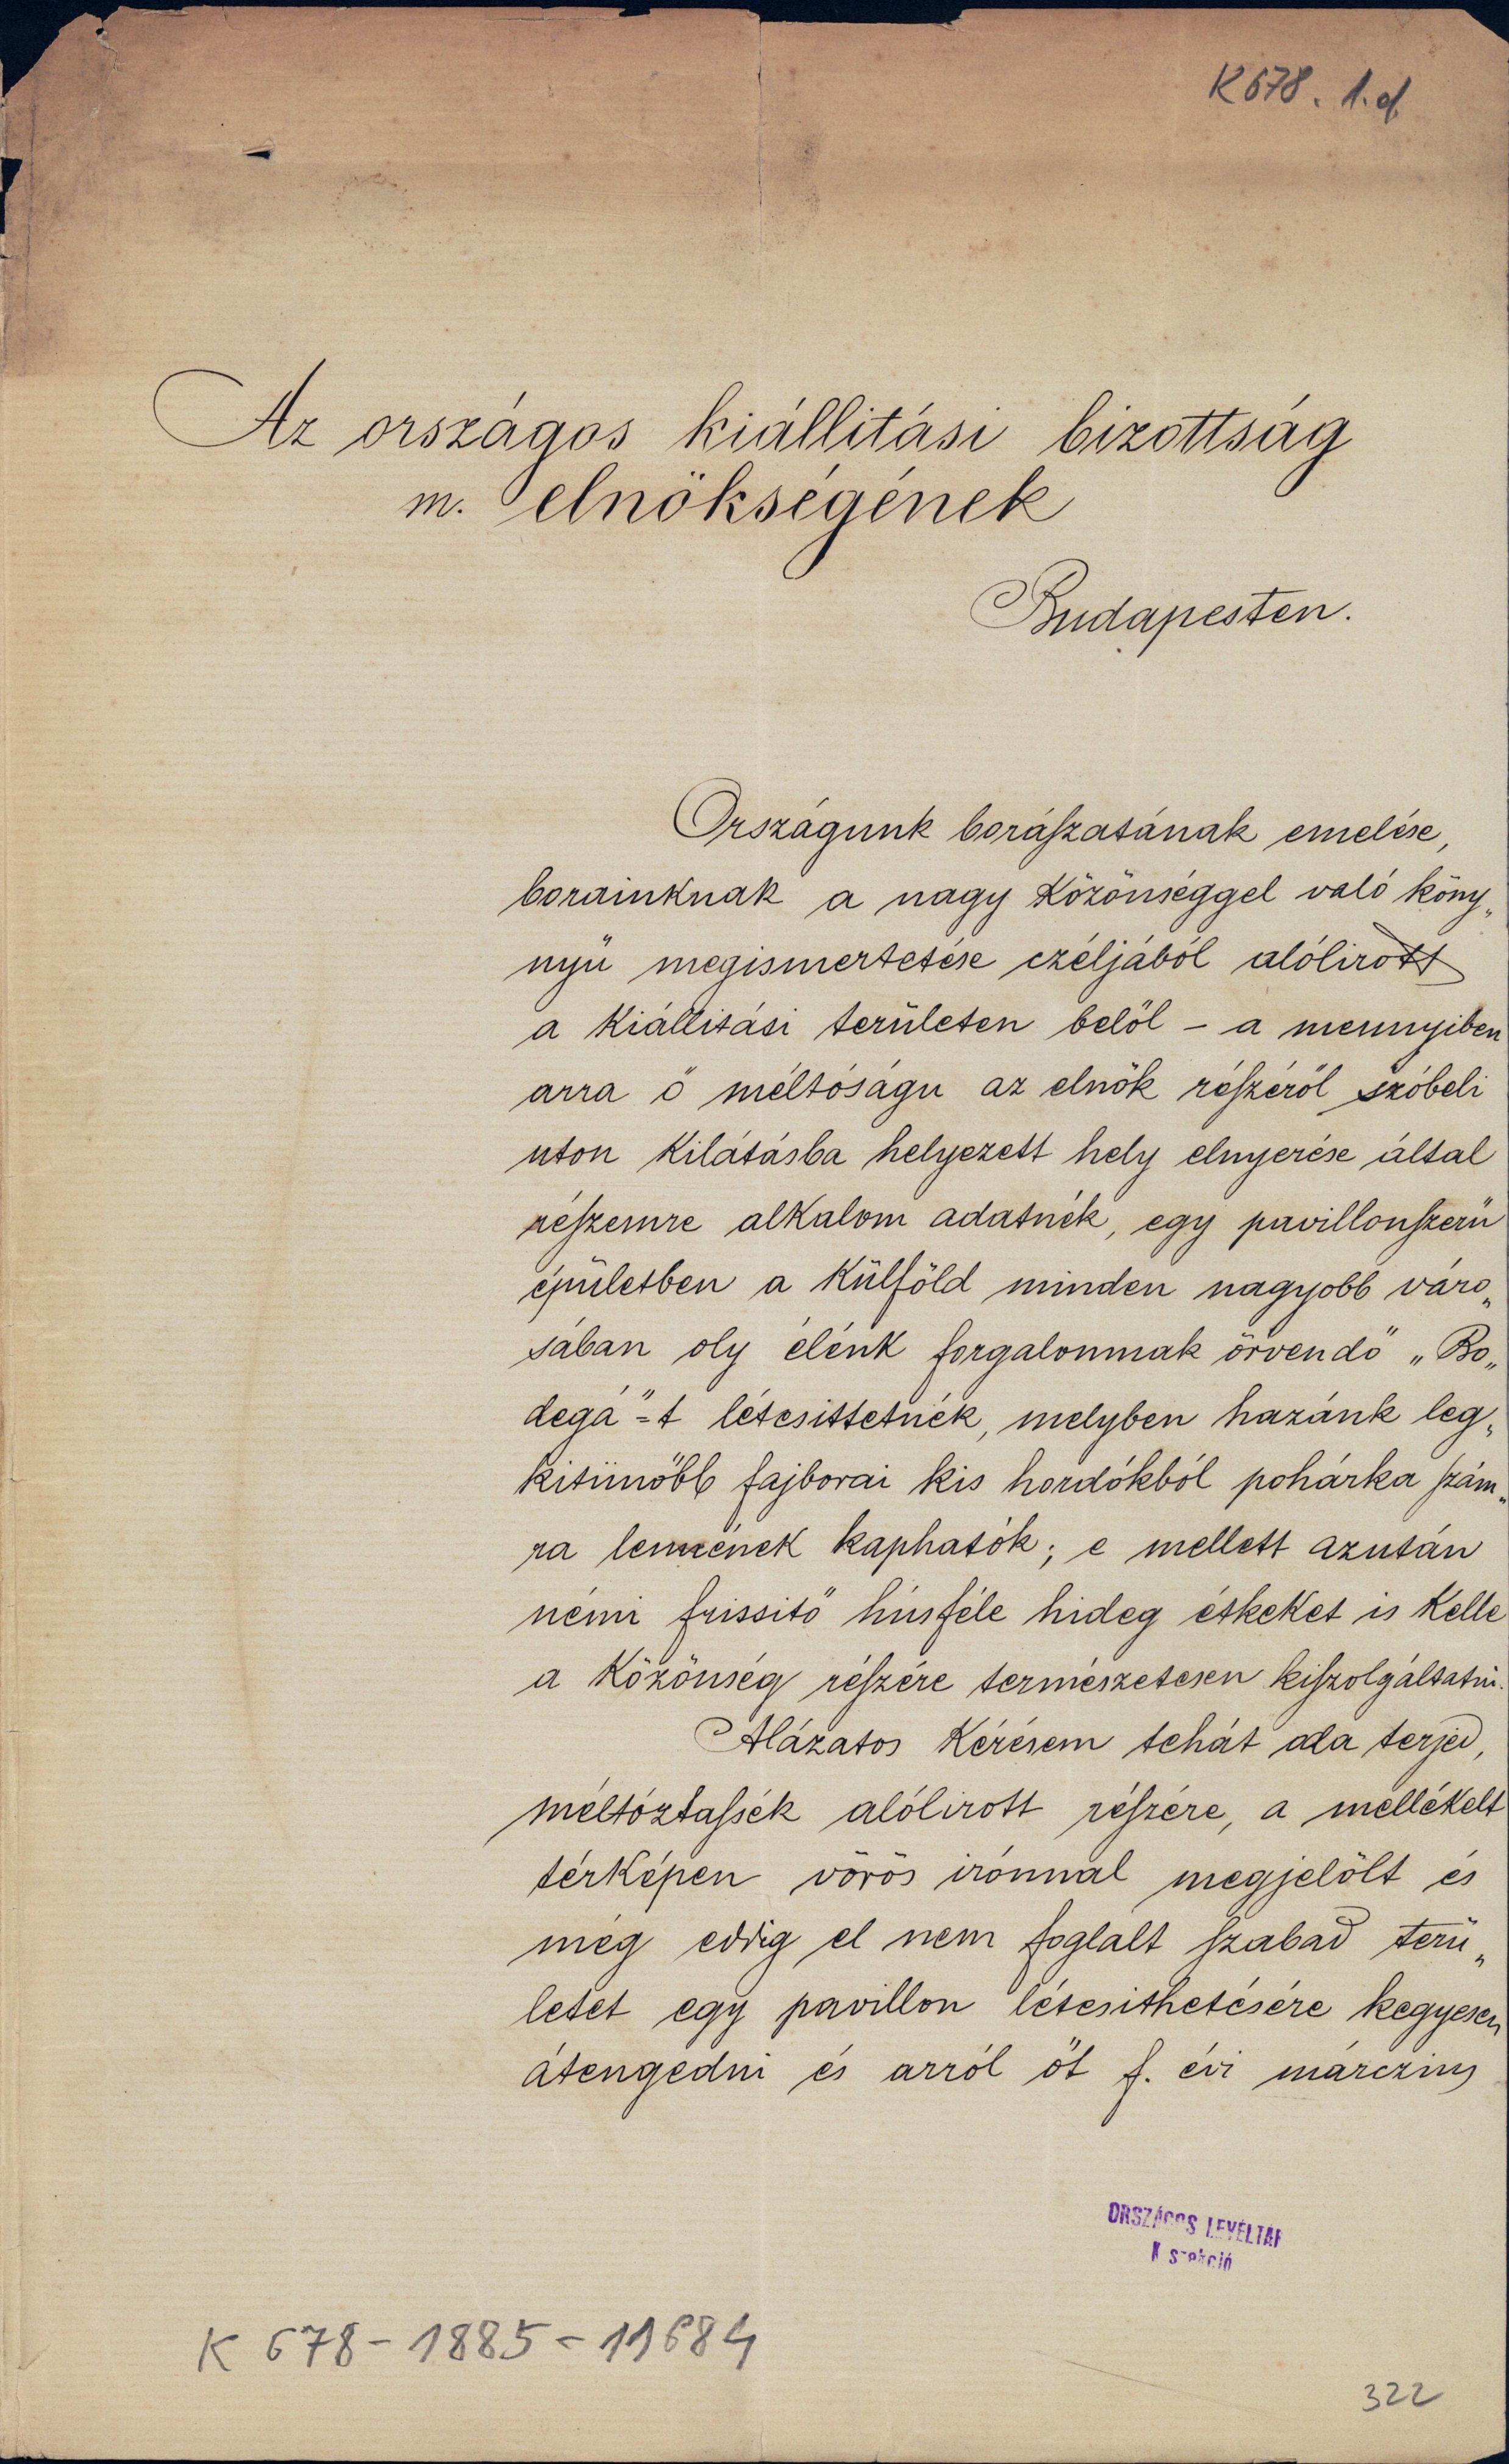 K 678. 1. d.
Az országos kiállitási bizottság
m. elnökségének
Budapesten.
Országunk borászatának emelése,
borainknak a nagy közönséggel való köny„
nyü megismertetése czéljából alólirott
a kiállitási területen belől – a mennyiben
arra ő méltóságu az elnök részéről szóbeli
uton kilátásba helyezett hely elnyerése által
részemre alkalom adatnék, egy pavillonszerü
épületben a külföld minden nagyobb váro„
sában oly élénk forgalomnak örvendő „Bo„
degá"=t létesittetnék, melyben hazánk leg„
kitünőbb fajborai kis hordókból pohárka szám„
ra lennének kaphatók; e mellett azután
némi frissitő húsféle hideg étkeket is kelle
a közönség részére természetesen kiszolgáltatni.
Alázatos kérésem tehát oda terjed,
méltóztassék alólirott részére, a mellékelt
térképen vörös irónnal megjelölt és
még eddig el nem foglalt szabad terü„
letet egy pavillon létesithetésére kegyesen
átengedni és arról őt f. évi márczius
ORSZÁGOS LEVÉLTÁR
K szekció
K 678 - 1885 - 11684
322